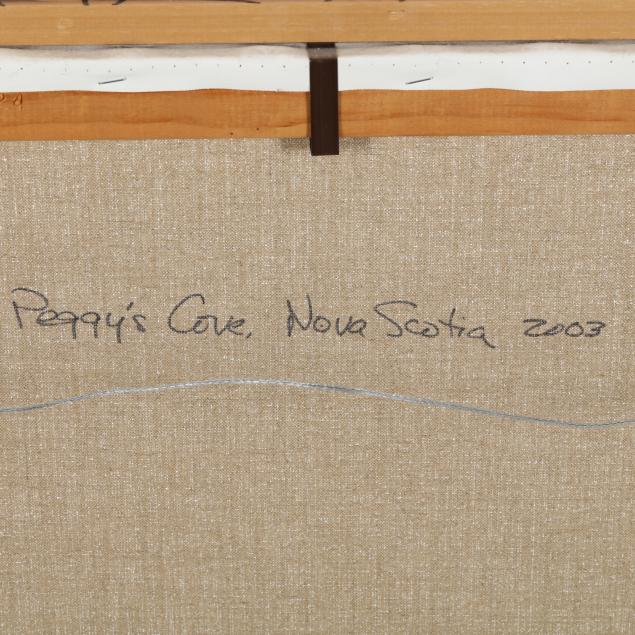 Peggy's Cove, Nova Scotia 2003